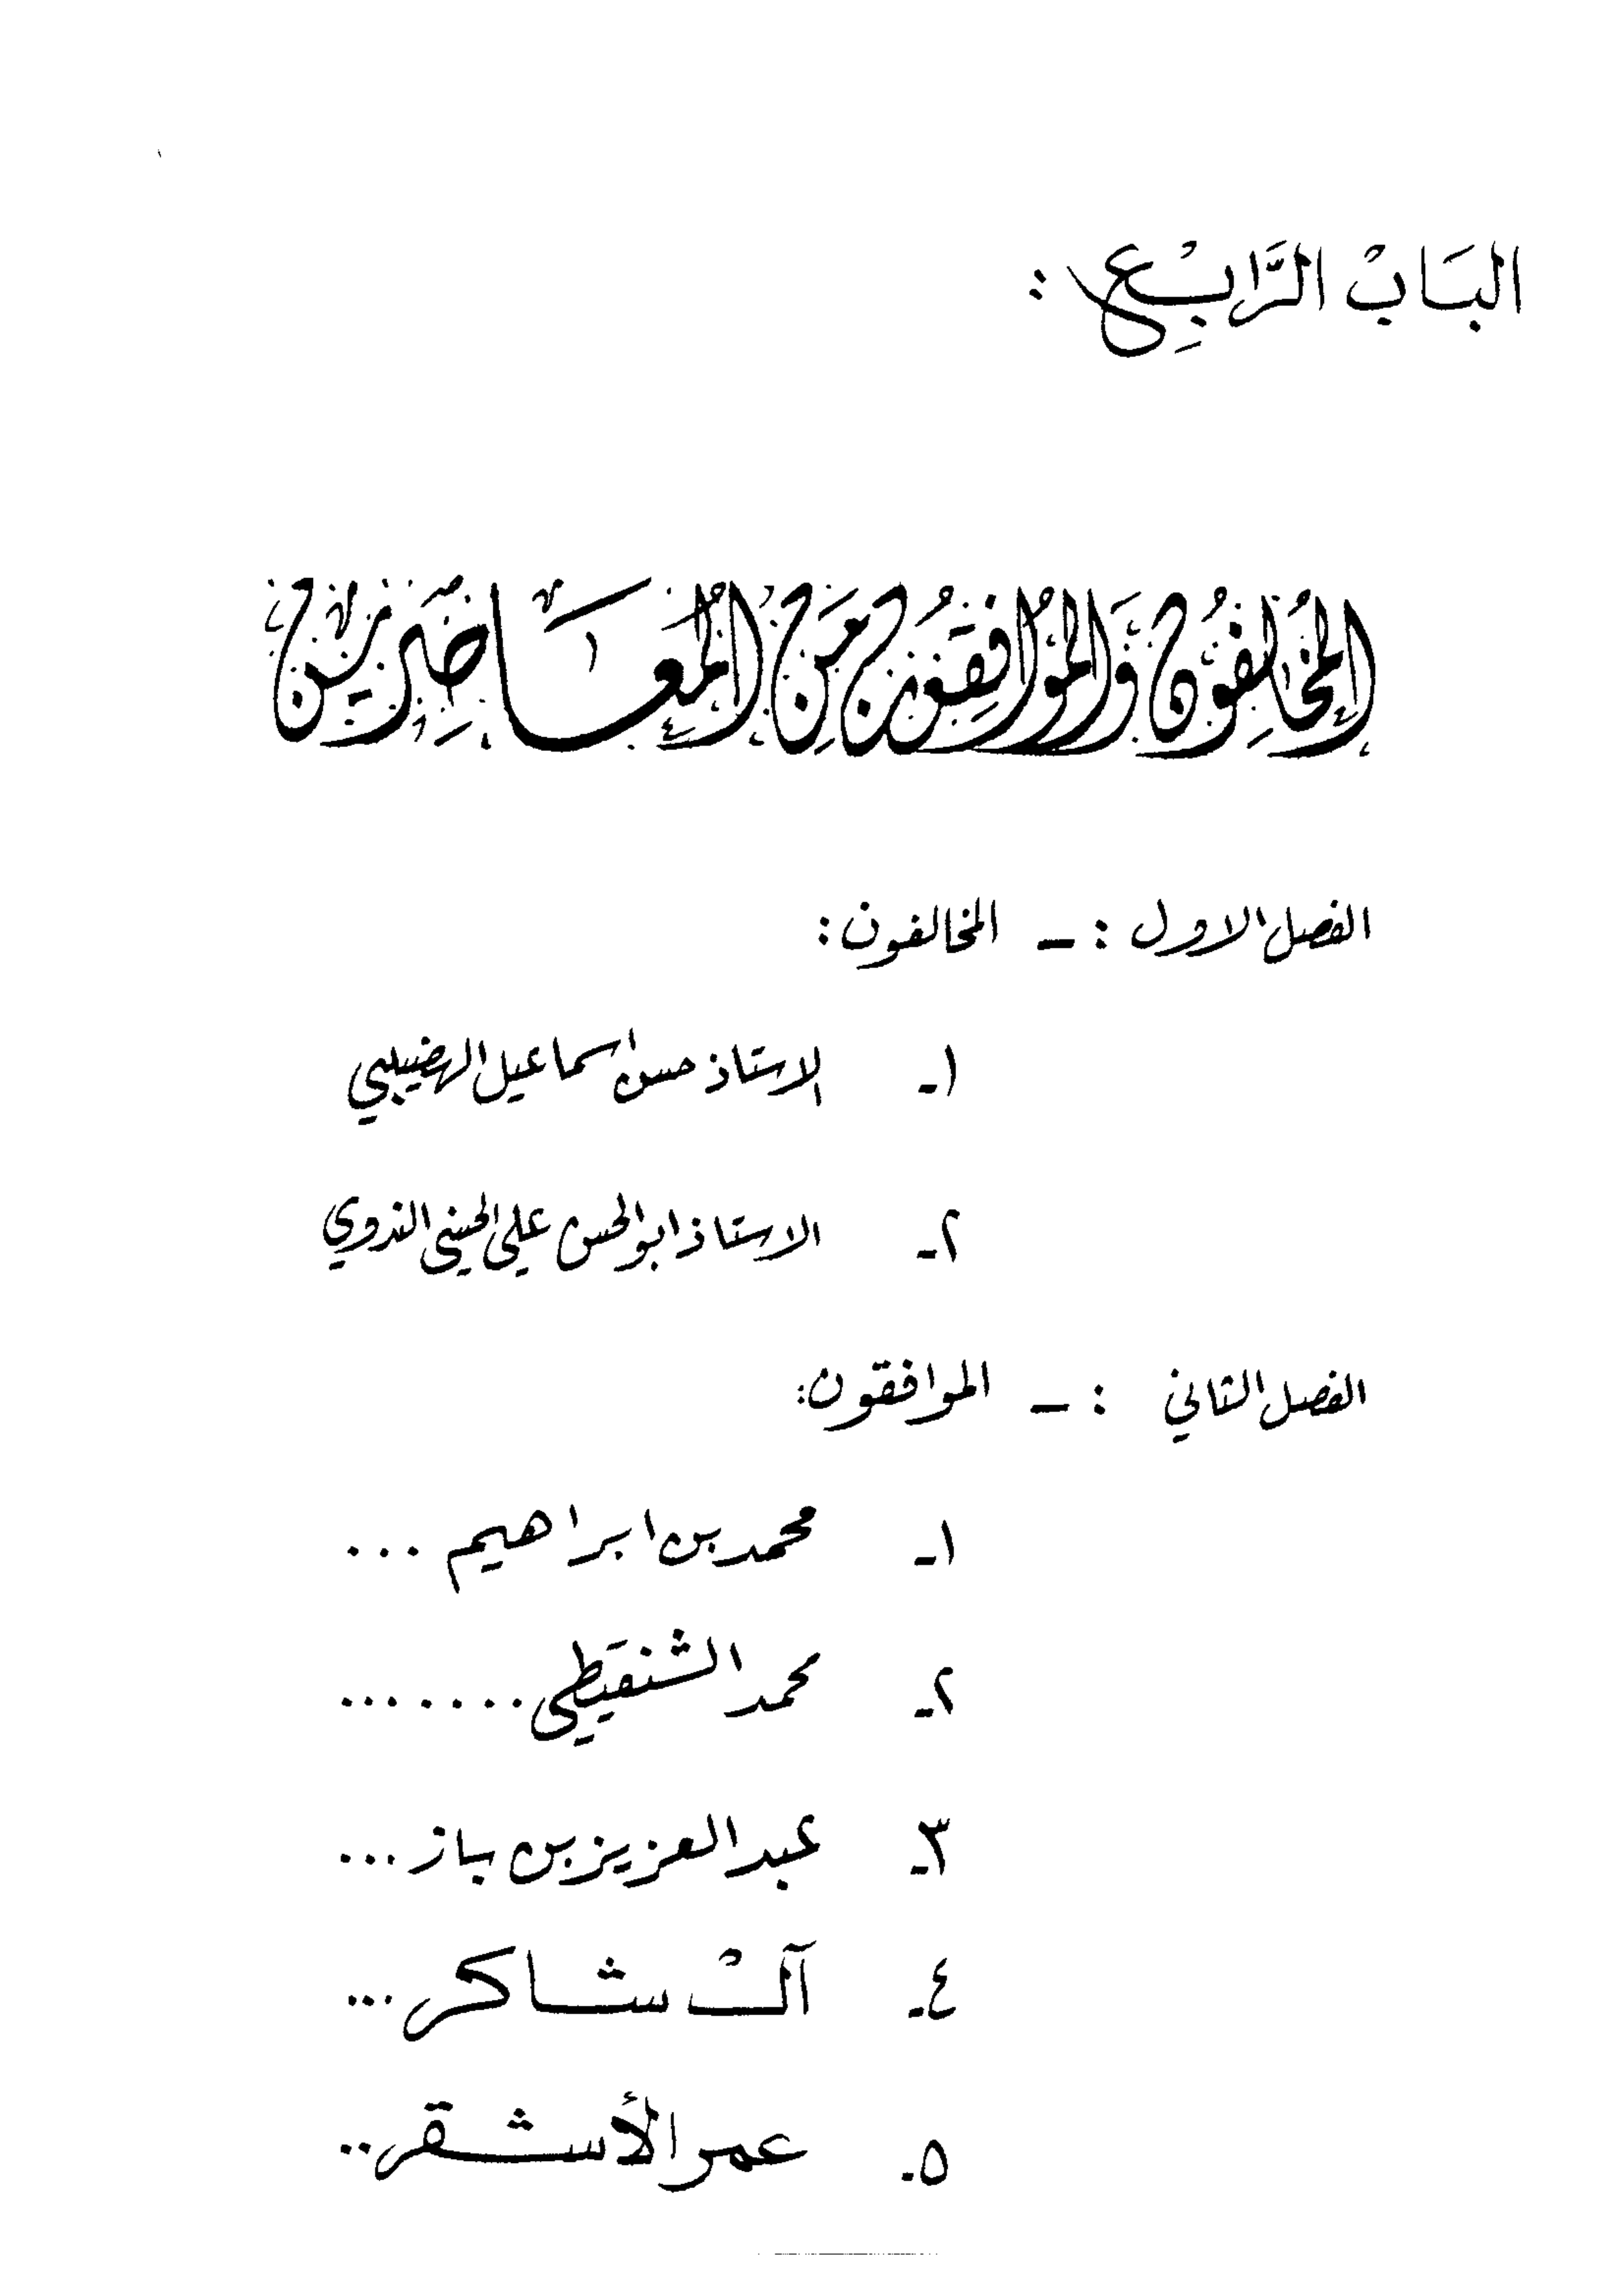 البَابْ الرَّابِعْ :
المُخَالِفُونَ وَالمُوَافِقُونَ مِنَ المُعَاصِرِينَ
الفصل الاول : - المخالفون :
١- الاستاذ حسن اسماعيل الهضيبي
٢- الاستاذ ابو الحسن علي الحسني الندوي
الفصل الثاني : - الموافقون :
١- محمد بن ابراهيم ...
٢- محمد الشنقيطي .......
٣- عبد العزيز بن باز ...
٤- آلْ شاكر ...
٥- عمر الأشقر ..